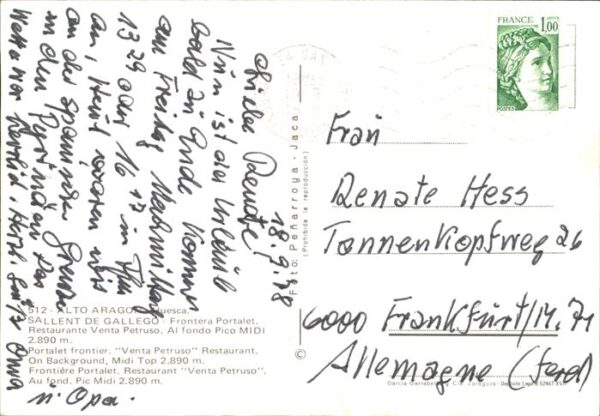 18.9.78
Liebe Renate!
Nun ist der Urlaub
bald zu Ende Kommen
am Freitag Nachmittag
13 24 oder 16 47 in
an, Heut waren wir
an der spanischen Grenze
in den Pyrenäen Das
Wetter war Herzl. Grüße Oma
u. Opa.
512 - ALTO ARAGON Huesca.
SALLENT DE GALLEGO - Frontera Portalet.
Restaurante Venta Petruso. Al fondo Pico MIDI
2.890 m.
Portalet frontier. "Venta Petruso" Restaurant.
On Background, Midi Top 2.890 m.
Frontière Portalet. Restaurant "Venta Petruso".
Au fond. Pic Midi 2.890 m.
Foto: Peñarroya - Jaca
(Prohibida la reproducción)
©
FRANCE
1,00
Frau
Renate Hess
Tannenkopfweg 26
6000 Frankfurt/M. 71
Allemagne (fed)
García Garrabella y Cía. Zaragoza - Depósito Legal B